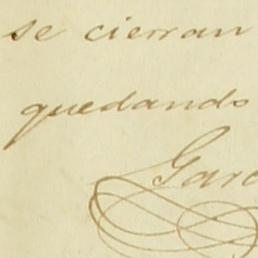 se cierran
quedando
Garc